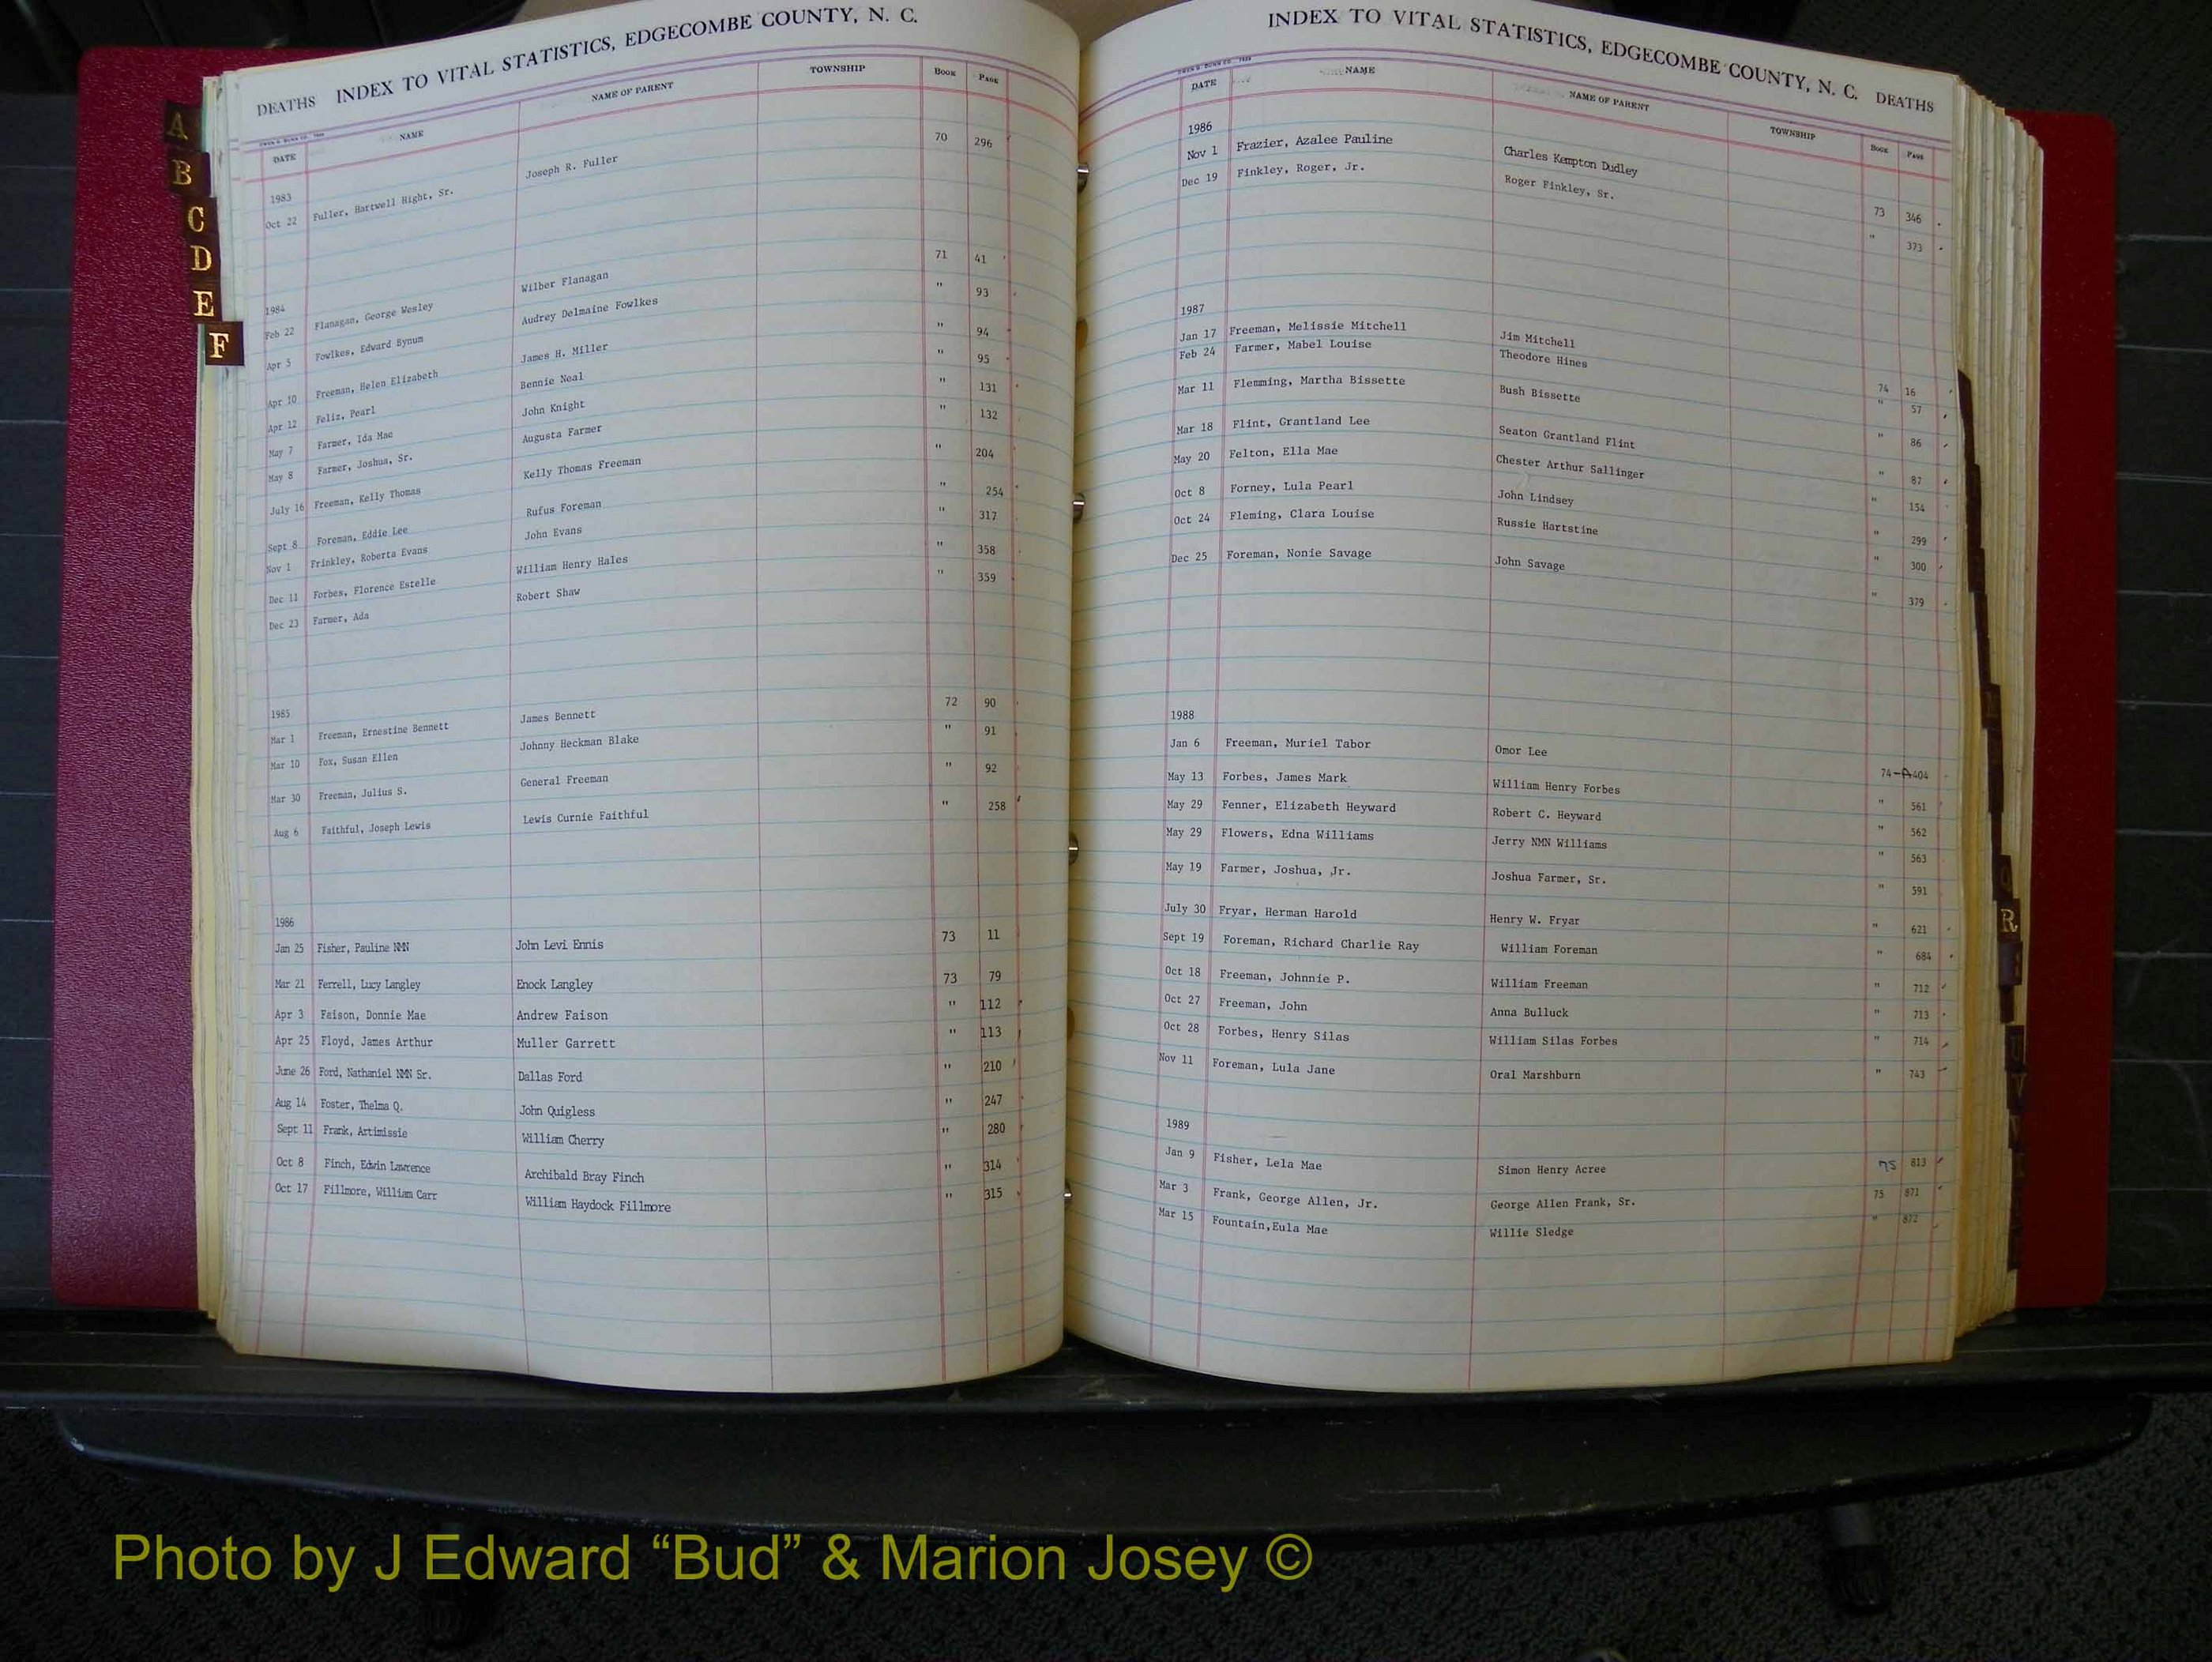 DEATHS INDEX TO VITAL STATISTICS, EDGECOMBE COUNTY, N. C.
DATE NAME NAME OF PARENT TOWNSHIP BOOK PAGE
1983
Oct 22 Fuller, Hartwell Hight, Sr. Joseph R. Fuller 70 296
1984
Feb 22 Flanagan, George Wesley Wilber Flanagan 71 41
Apr 5 Fowlkes, Edward Bynum Audrey Delmaine Fowlkes " 93
Apr 10 Freeman, Helen Elizabeth James H. Miller " 94
Apr 12 Feliz, Pearl Bennie Neal " 95
May 7 Farmer, Ida Mae John Knight " 131
May 8 Farmer, Joshua, Sr. Augusta Farmer " 132
July 16 Freeman, Kelly Thomas Kelly Thomas Freeman " 204
Sept 8 Foreman, Eddie Lee Rufus Foreman " 254
Nov 1 Frinkley, Roberta Evans John Evans " 317
Dec 11 Forbes, Florence Estelle William Henry Hales " 358
Dec 23 Farmer, Ada Robert Shaw " 359
1985
Mar 1 Freeman, Ernestine Bennett James Bennett 72 90
Mar 10 Fox, Susan Ellen Johnny Heckman Blake " 91
Mar 30 Freeman, Julius S. General Freeman " 92
Aug 6 Faithful, Joseph Lewis Lewis Curnie Faithful " 258
1986
Jan 25 Fisher, Pauline NMN John Levi Ennis 73 11
Mar 21 Ferrell, Lucy Langley Enock Langley 73 79
Apr 3 Faison, Donnie Mae Andrew Faison " 112
Apr 25 Floyd, James Arthur Muller Garrett " 113
June 26 Ford, Nathaniel NMN Sr. Dallas Ford " 210
Aug 14 Foster, Thelma Q. John Quigless " 247
Sept 11 Frank, Artimissie William Cherry " 280
Oct 8 Finch, Edwin Lawrence Archibald Bray Finch " 314
Oct 17 Fillmore, William Carr William Haydock Fillmore " 315
A
B
C
D
E
F
INDEX TO VITAL STATISTICS, EDGECOMBE COUNTY, N. C. DEATHS
DATE NAME NAME OF PARENT TOWNSHIP BOOK PAGE
1986
Nov 1 Frazier, Azalee Pauline Charles Kempton Dudley 73 346
Dec 19 Finkley, Roger, Jr. Roger Finkley, Sr. " 373
1987
Jan 17 Freeman, Melissie Mitchell Jim Mitchell 74 16
Feb 24 Farmer, Mabel Louise Theodore Hines " 57
Mar 11 Flemming, Martha Bissette Bush Bissette " 86
Mar 18 Flint, Grantland Lee Seaton Grantland Flint " 87
May 20 Felton, Ella Mae Chester Arthur Sallinger " 154
Oct 8 Forney, Lula Pearl John Lindsey " 299
Oct 24 Fleming, Clara Louise Russie Hartstine " 300
Dec 25 Foreman, Nonie Savage John Savage " 379
1988
Jan 6 Freeman, Muriel Tabor Omor Lee 74-A 404
May 13 Forbes, James Mark William Henry Forbes " 561
May 29 Fenner, Elizabeth Heyward Robert C. Heyward " 562
May 29 Flowers, Edna Williams Jerry NMN Williams " 563
May 19 Farmer, Joshua, Jr. Joshua Farmer, Sr. " 591
July 30 Fryar, Herman Harold Henry W. Fryar " 621
Sept 19 Foreman, Richard Charlie Ray William Foreman " 684
Oct 18 Freeman, Johnnie P. William Freeman " 712
Oct 27 Freeman, John Anna Bulluck " 713
Oct 28 Forbes, Henry Silas William Silas Forbes " 714
Nov 11 Foreman, Lula Jane Oral Marshburn " 743
1989
Jan 9 Fisher, Lela Mae Simon Henry Acree 75 813
Mar 3 Frank, George Allen, Jr. George Allen Frank, Sr. 75 871
Mar 15 Fountain,Eula Mae Willie Sledge " 872
R
Photo by J Edward “Bud” & Marion Josey ©